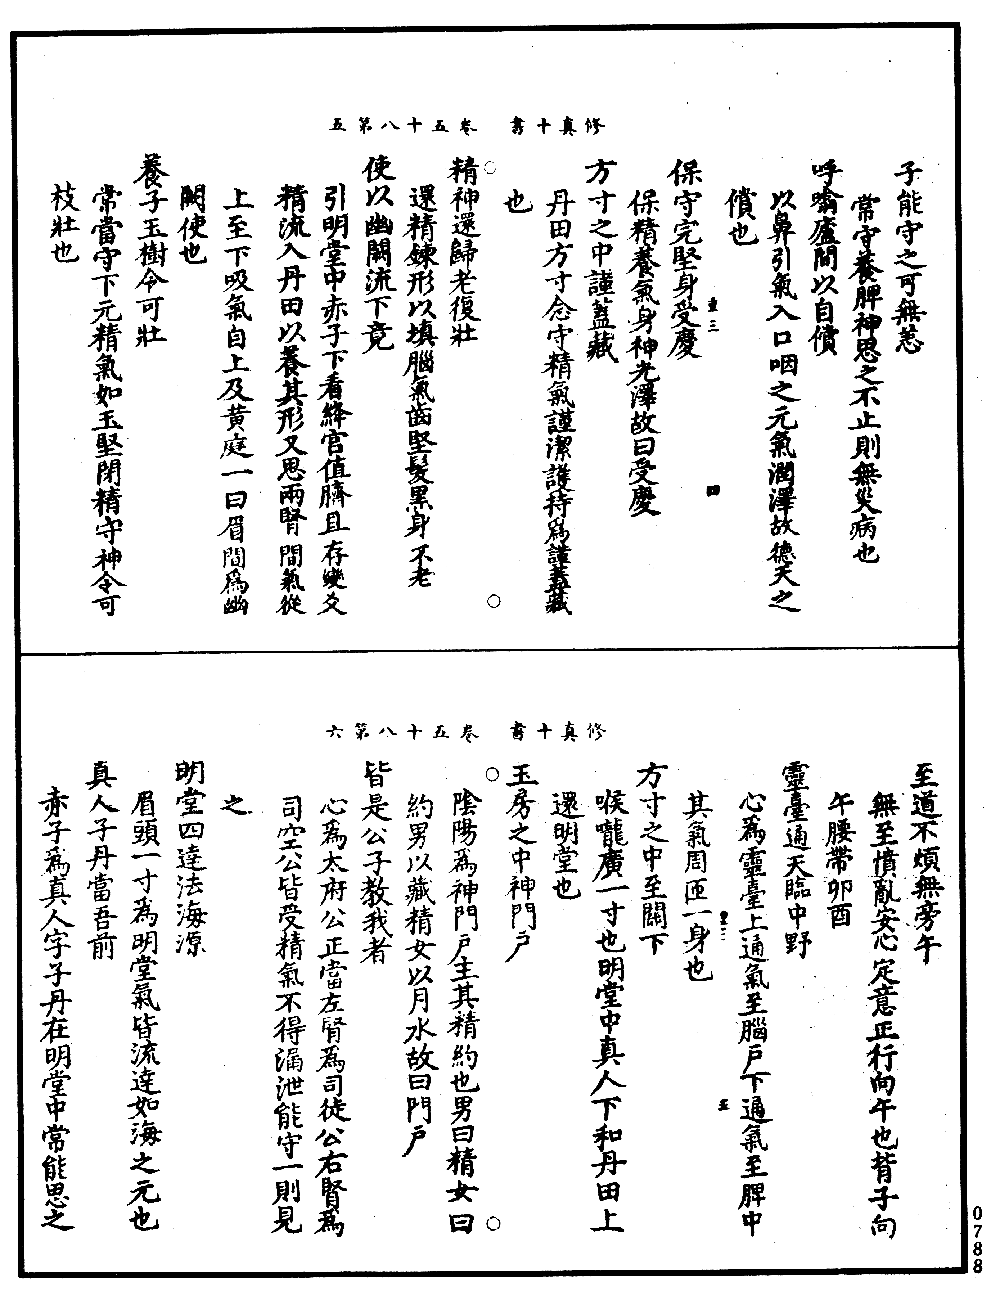 修真十書　卷五十八第五
子能守之可無恙
常守養脾神思之不止則無災病也
呼噏廬間以自償
以鼻引氣入口咽之元氣潤澤故德天之
償也
保守完堅身受慶
保精養氣身神光澤故曰受慶
方寸之中謹蓋藏
丹田方寸念守精氣謹潔護持爲謹蓋藏
也
精神還歸老復壯
還精鍊形以填腦氣齒堅髮黑身不老
使以幽闕流下竟
引明堂中赤子下看絳宮值臍且存變爻
精流入丹田以養其形又思兩腎間氣從
上至下吸氣自上及黄庭一曰眉間爲幽
闕使也
養子玉樹令可壯
常當守下元精氣如玉堅閉精守神令可
枝壯也
三
四
修真十書　卷五十八第六
至道不煩無旁午
無至憒亂安心定意正行向午也背子向
午腰帶卯酉
靈臺通天臨中野
心爲靈臺上通氣至腦戶下通氣至脾中
其氣周匝一身也
方寸之中至關下
喉嚨廣一寸也明堂中真人下和丹田上
還明堂也
玉房之中神門戶
陰陽爲神門戶主其精約也男曰精女曰
約男以藏精女以月水故曰門戶
皆是公子教我者
心爲太府公正當左腎爲司徒公右腎爲
司空公皆受精氣不得漏泄能守一則見
之
明堂四達法海源
眉頭一寸爲明堂氣皆流達如海之元也
真人子丹當吾前
赤子爲真人字子丹在明堂中常能思之
五
0788